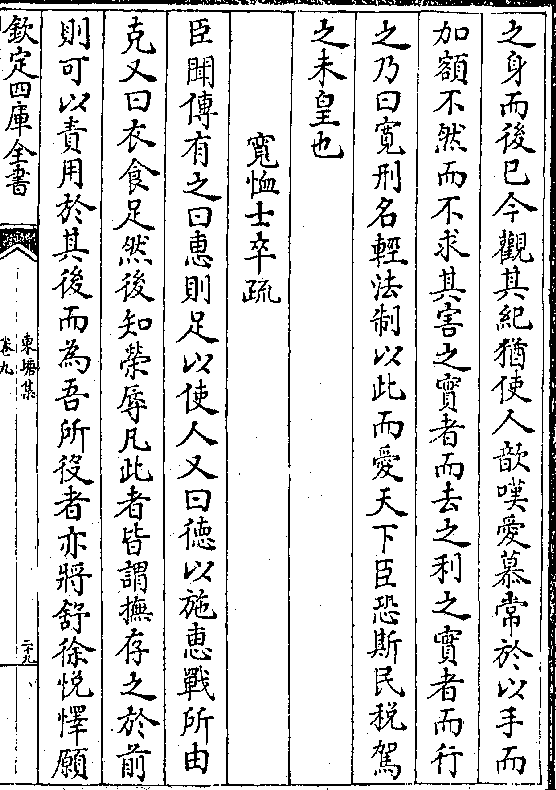 之身而後已今觀其紀猶使人歆嘆愛慕常於以手而
加額不然而不求其害之實者而去之利之實者而行
之乃曰寛刑名輕法制以此而愛天下臣恐斯民税駕
之未皇也
寛恤士卒疏
臣聞傳有之曰惠則足以使人又曰德以施惠戰所由
克又曰衣食足然後知榮辱凡此者皆謂撫存之於前
則可以責用於其後而為吾所役者亦將舒徐悦懌願
欽定四庫全書
東塘集
卷九
二十九